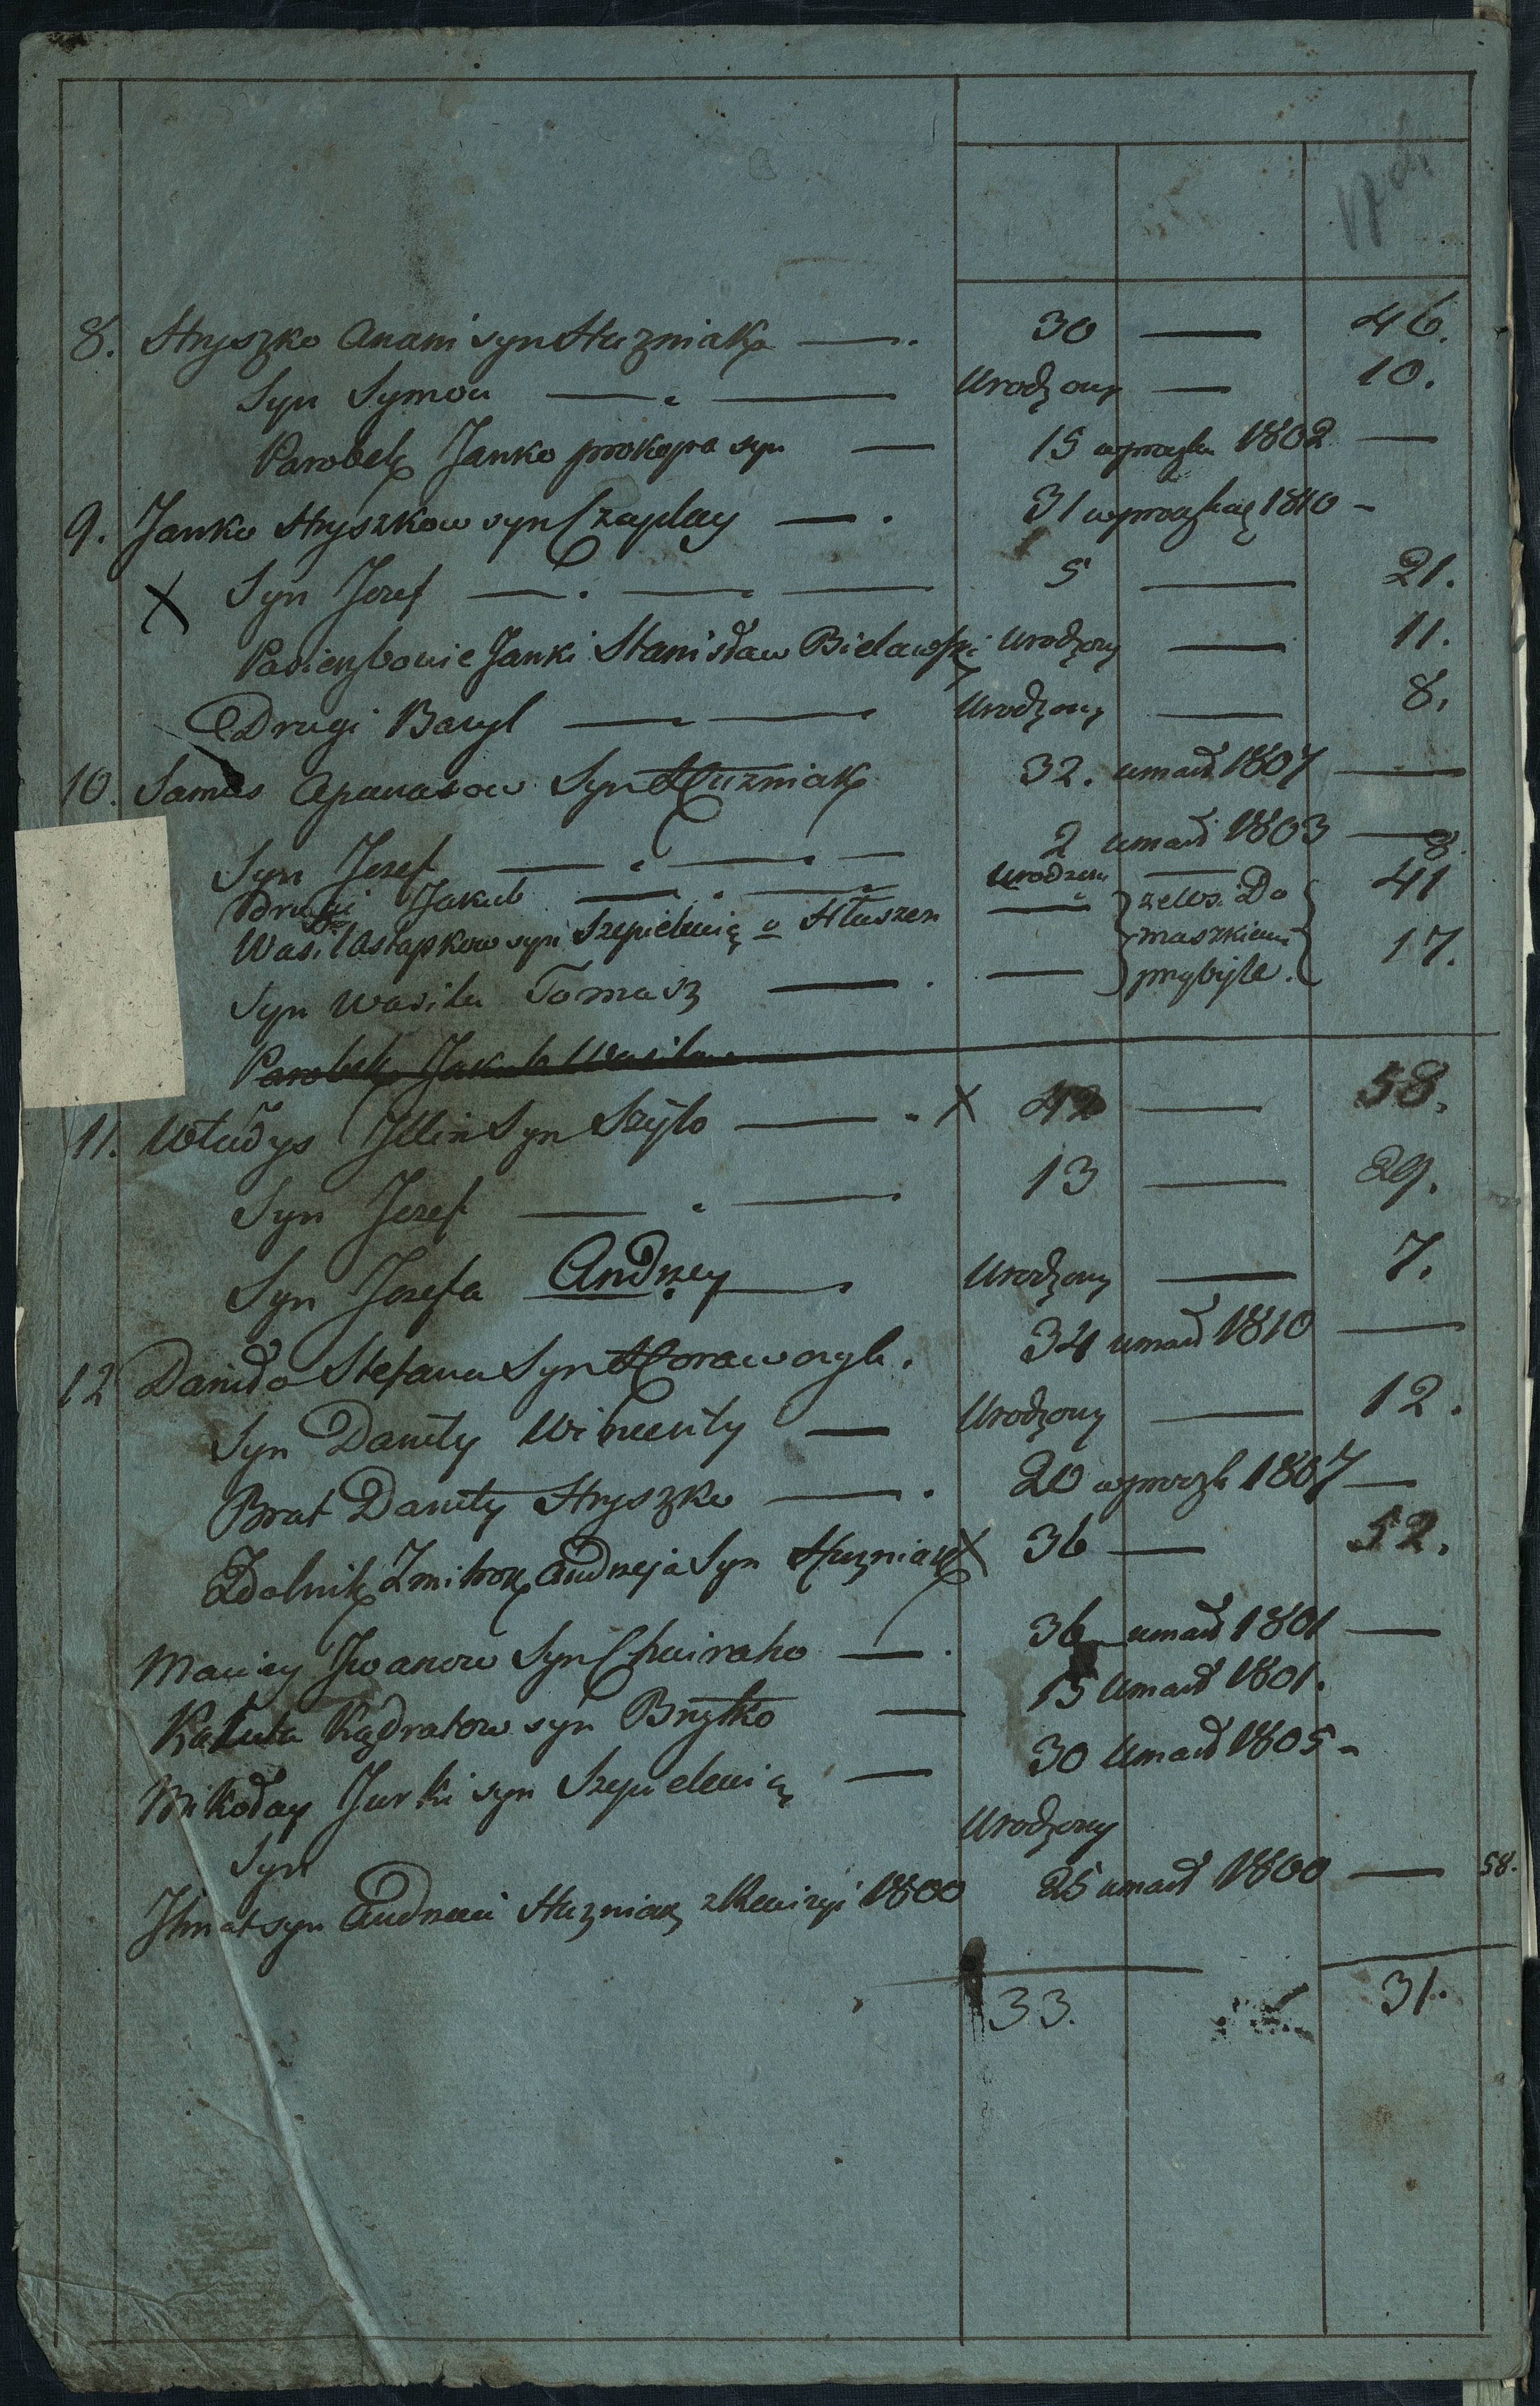 8. Hryszko Anani syn Huzniak 30 — 46.
Syn Symon — Urodzony — 10.
Parobek Janko prokopa syn — 15 w prożbie 1802 —
9. Janko Hryszkow syn Czaplay — 31 1810 -
X Syn Jozef — 5 — 21.
Janki Stanisław Bielawski Urodzony — 11.
Drugi Bazyl — Urodzony — 8.
10. Samos Apanasow Syn Huzniak 32. umarł 1807 —
Syn Jozef — 2 umarł 1803 —
Drugi Jakub — Urodzeni — 8.
Wasil Astapkow syn Szepielewicz u Hłuszen — zewsi Do 41
maszkiewi
Syn Wasila Tomasz — przybyłe. 17.
Parobek Jakub Wasilow
11. Władys Illin Syn Szyło — X 42 — 58.
Syn Jozef — 13 — 29.
Syn Jozefa Andrzey — Urodzony — 7.
12 Daniło Stefana Syn 34 umarł 1810 —
Syn Daniły Wincenty — Urodzony — 12.
Brat Daniły Hryszko — 20 1807 —
Zdolnik Zmitrok Andrzeja Syn Huzniak X 36 — 52.
Maciey Iwanow Syn — 36 umarł 1801 —
Kałuta Kądratow syn Bryłko — 15 Umarł 1801.
Mikołay Jurki syn Szepielewicz — 30 Umarł 1805 -
Syn Urodzony
Ihnat syn Andrzeia Huzniak z Rewizyi 1800 25 umarł 1800 — 58.
33. 31.